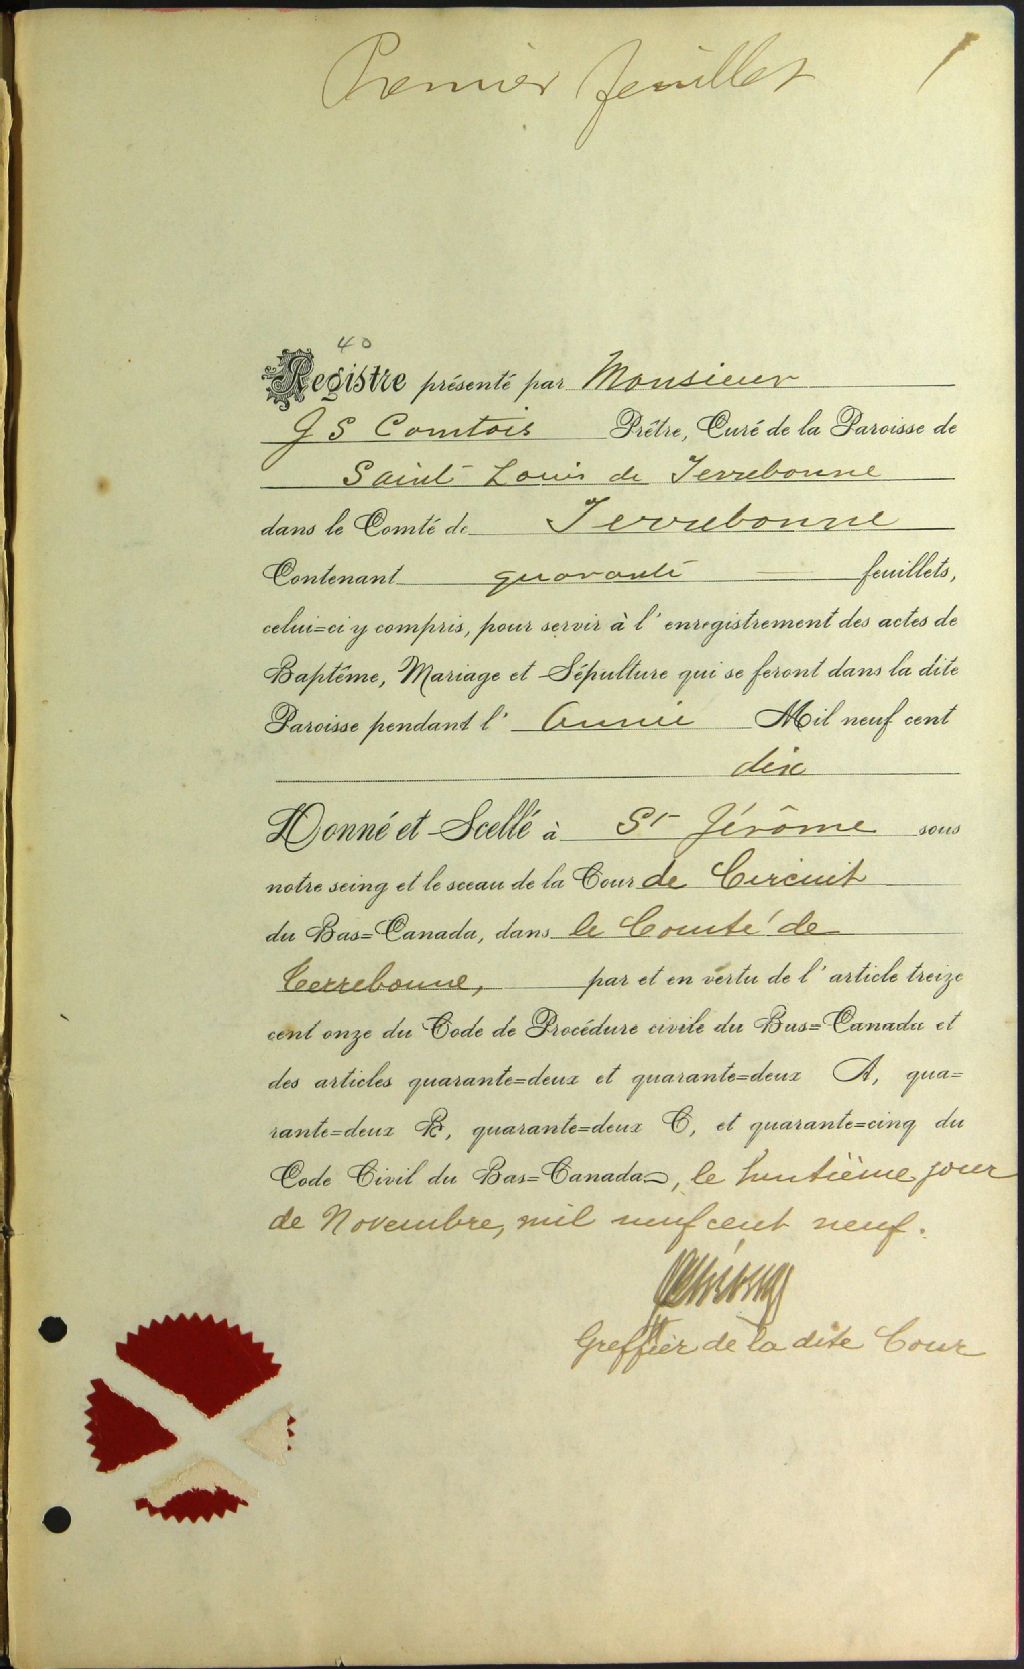 Premier feuillet 1
40
Registre présenté par Monsieur
J S Comtois Prêtre, Curé de la Paroisse de
Saint Louis de Terrebonne
dans le Comté de Terrebonne
Contenant quarante feuillets,
celui=ci y compris, pour servir à l'enregistrement des actes de
Baptême, Mariage et Sépulture qui se feront dans la dite
Paroisse pendant l'Année Mil neuf cent
dix
Donné et Scellé à St Jérôme sous
notre seing et le sceau de la Cour de Circuit
du Bas=Canada, dans le Comté de
Terrebonne, par et en vertu de l'article treize
cent onze du Code de Procédure civile du Bas=Canada et
des articles quarante=deux et quarante=deux A, qua=
rante=deux B, quarante=deux C, et quarante=cinq du
Code Civil du Bas=Canada, le huitième jour
de Novembre, mil neuf cent neuf.
Greffier de la dite Cour